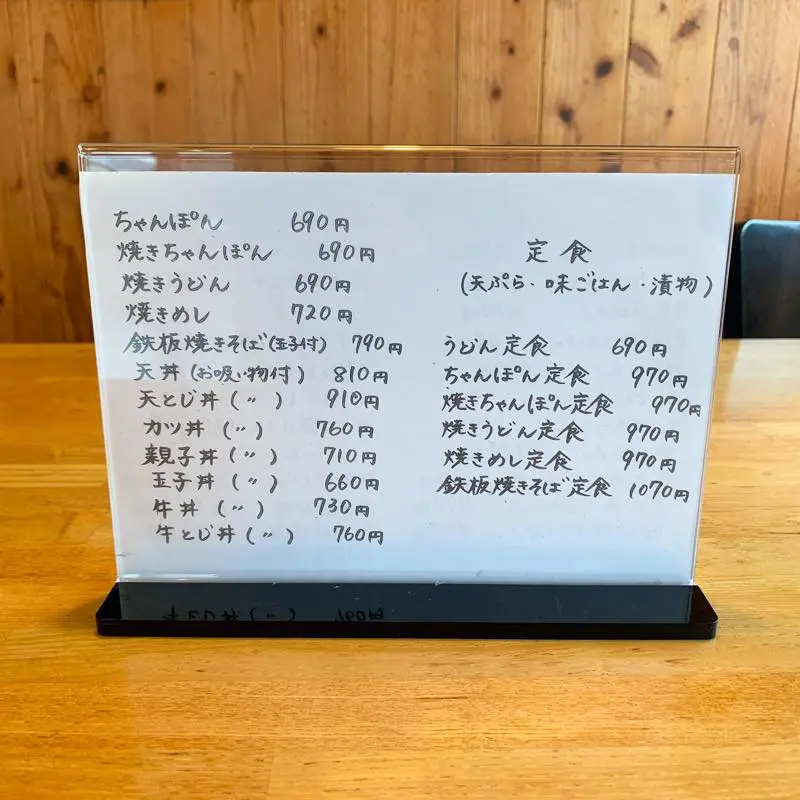 ちゃんぽん 690円
焼きちゃんぽん 690円
焼きうどん 690円
焼きめし 720円
鉄板焼きそば(玉子付) 790円
天丼 (お吸い物付) 810円
天とじ丼 (〃) 910円
カツ丼 (〃) 760円
親子丼 (〃) 710円
玉子丼 (〃) 660円
牛丼 (〃) 730円
牛とじ丼 (〃) 760円
定食
(天ぷら・味ごはん・漬物)
うどん定食 690円
ちゃんぽん定食 970円
焼きちゃんぽん定食 970円
焼きうどん定食 970円
焼きめし定食 970円
鉄板焼きそば定食 1070円